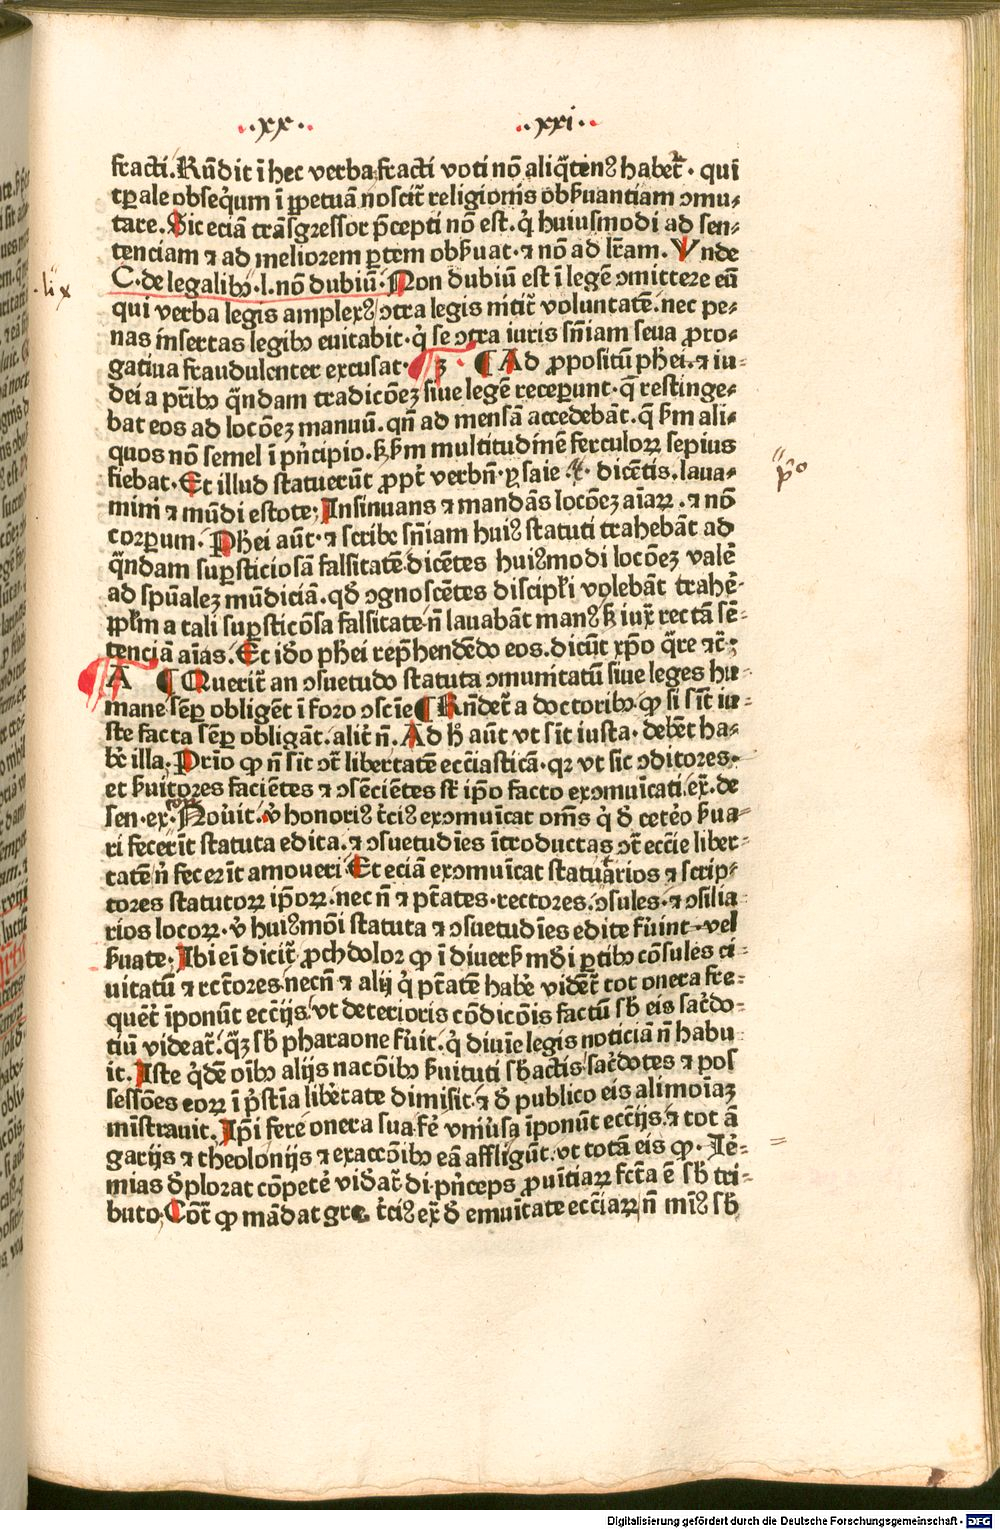 ..xx.. ..xxi..
fracti. Rñdit ĩ hec verba fracti voti nõ aliq̃ten⁹ habet̃ . qui
tp̱ale obseq̃um ĩ ꝑpetuã noscit̃ religionis obẜuantiam ↄmu⸗
tare. Sic eciã trãsgressor p̃cepti nõ est. q̇ huiusmodi ad sen⸗
tenciam ⁊ ad meliorem ꝑtem obẜuat . ⁊ nõ ad lr̃am. Vnde
.lix
C. de legalibꝫ . l . nõ dubiũ . Non dubiũ est ĩ legẽ ↄmittere eũ
qui verba legis amplex⁹ ↄtra legis nitit̃ voluntatẽ . nec pe⸗
nas insertas legibꝫ euitabit . q̇ se ↄtra iuris sñiam seua ꝓro⸗
gatiua fraudulenter excusat . ¶ Ad ꝓpositũ phei . ⁊ iu⸗
dei a pr̃ibꝫ q̃ndam tradicõeꝫ siue legẽ receꝑunt . q̃ restinge⸗
bat eos ad locõeꝫ manuũ . qñ ad mensã accedebãt . q̃ ẜm ali⸗
quos nõ semel ĩ pñcipio . ẜꝫ ẜm multitudinẽ ferculoꝝ sepius
fiebat . Et illud statuerũt ꝓpt̃ verbũ . ysaie dicẽtis . laua⸗
p̃o
mini ⁊ mũdi estote; Insinuans ⁊ mandãs locõeꝫ aĩaꝝ . ⁊ nõ
corꝑum . Phei aũt . ⁊ scribe sñiam hui⁹ statuti trahebãt ad
q̃ndam suꝑsticiosã falsitatẽ dicẽtes hui⁹modi locõeꝫ valẽ
ad spũaleꝫ mũdiciã . qđ ↄgnoscẽtes discipl̃i volebãt trahẽ⸗
ppl̃m a tali suꝑsticõsa falsitate ñ lauabãt man⁹ ẜꝫ iux̃ rectã sẽ⸗
tenciã aĩas . Et iđo phei rep̃hendẽdo eos . dicũt xp̃o q̃re ⁊c̃;
A ¶ Querit̃ an ↄsuetudo statuta ↄmunitatũ siue leges hu
mane sẽꝑ obligẽt ĩ foro ↄscĩe ¶ Rñdet̃ a doctoribꝫ ꝙ si sĩt iu⸗
ste facta sẽꝑ obligãt . alit̃ ñ . Ad ħ aũt vt sĩt iusta . debẽt ha⸗
bẽ illa . Prĩo ꝙ ñ sĩt ↄt̃ libertatẽ ecc̃iasticã . qꝛ vt sic ↄditores .
et ẜuitores faciẽtes ⁊ ↄsẽciẽtes sũt ip̃o facto exↄmuĩcati . ex̃ . de
sen . ex . Nouit . v̓ honori⁹ t̃ci⁹ exↄmuĩcat om̃s q̇ đ cetẽo ẜua⸗
ri fecerĩt statuta edita . ⁊ ↄsuetudĩes ĩtroductas ↄt̃ ecc̃ie liber⸗
tatẽ ñ fecerĩt amoueri Et eciã exↄmuĩcat statuarios ⁊ scrip⸗
tores statutoꝝ ip̃oꝝ . nec ñ ⁊ ptãtes . rectores . ↄsules . ⁊ ↄsilia
rios locoꝝ . v̓ hui⁹mõi statuta ⁊ ↄsuetudĩes edite fũint . vel
ẜuate; Ibi eĩ dicit̃ ꝓchdolor ꝙ ĩ diuerẜ mđi ꝑtibꝫ cõsules ci⸗
uitatũ ⁊ rctores . necñ ⁊ alij q̇ ptãtem habẽ vidẽt̃ tot onera fre⸗
quẽt̃ ĩponũt ecc̃ijs . vt deterioris cõdicõis factũ sƀ eis sac̃do⸗
tiũ videat̃ . q̃ꝫ sƀ pharaone fũit . q̇ diuĩe legis noticiã ñ habu⸗
it . Iste q̇dẽ oĩbꝫ alijs nacõibꝫ ẜuituti sƀactis sac̃dotes ⁊ pos
sessões eoꝝ ĩ pr̃stĩa libẽtate dimisit . ⁊ đ publico eis alimoĩaꝫ
mĩstrauit . Ip̃i fere onera sua fẽ vniũsa ĩponũt ecc̃ijs . ⁊ tot ã
garijs ⁊ theolonijs ⁊ exaccõibꝫ eã affligũt . vt totã eis ꝙ . Ieẽ⸗
mias đplorat cõpetẽ viđat̃ . di . pñceps ꝓuĩtiaꝝ fc̃ta ẽ sƀ tri⸗
buto; Cõt̃ ꝙ mãdat gre t̃ci⁹ ex̃ đ emuĩtate ecc̃iaꝝ ñ mĩ⁹ sƀ
Digitalisierung gefördert durch die Deutsche Forschungsgemeinschaft - DFG